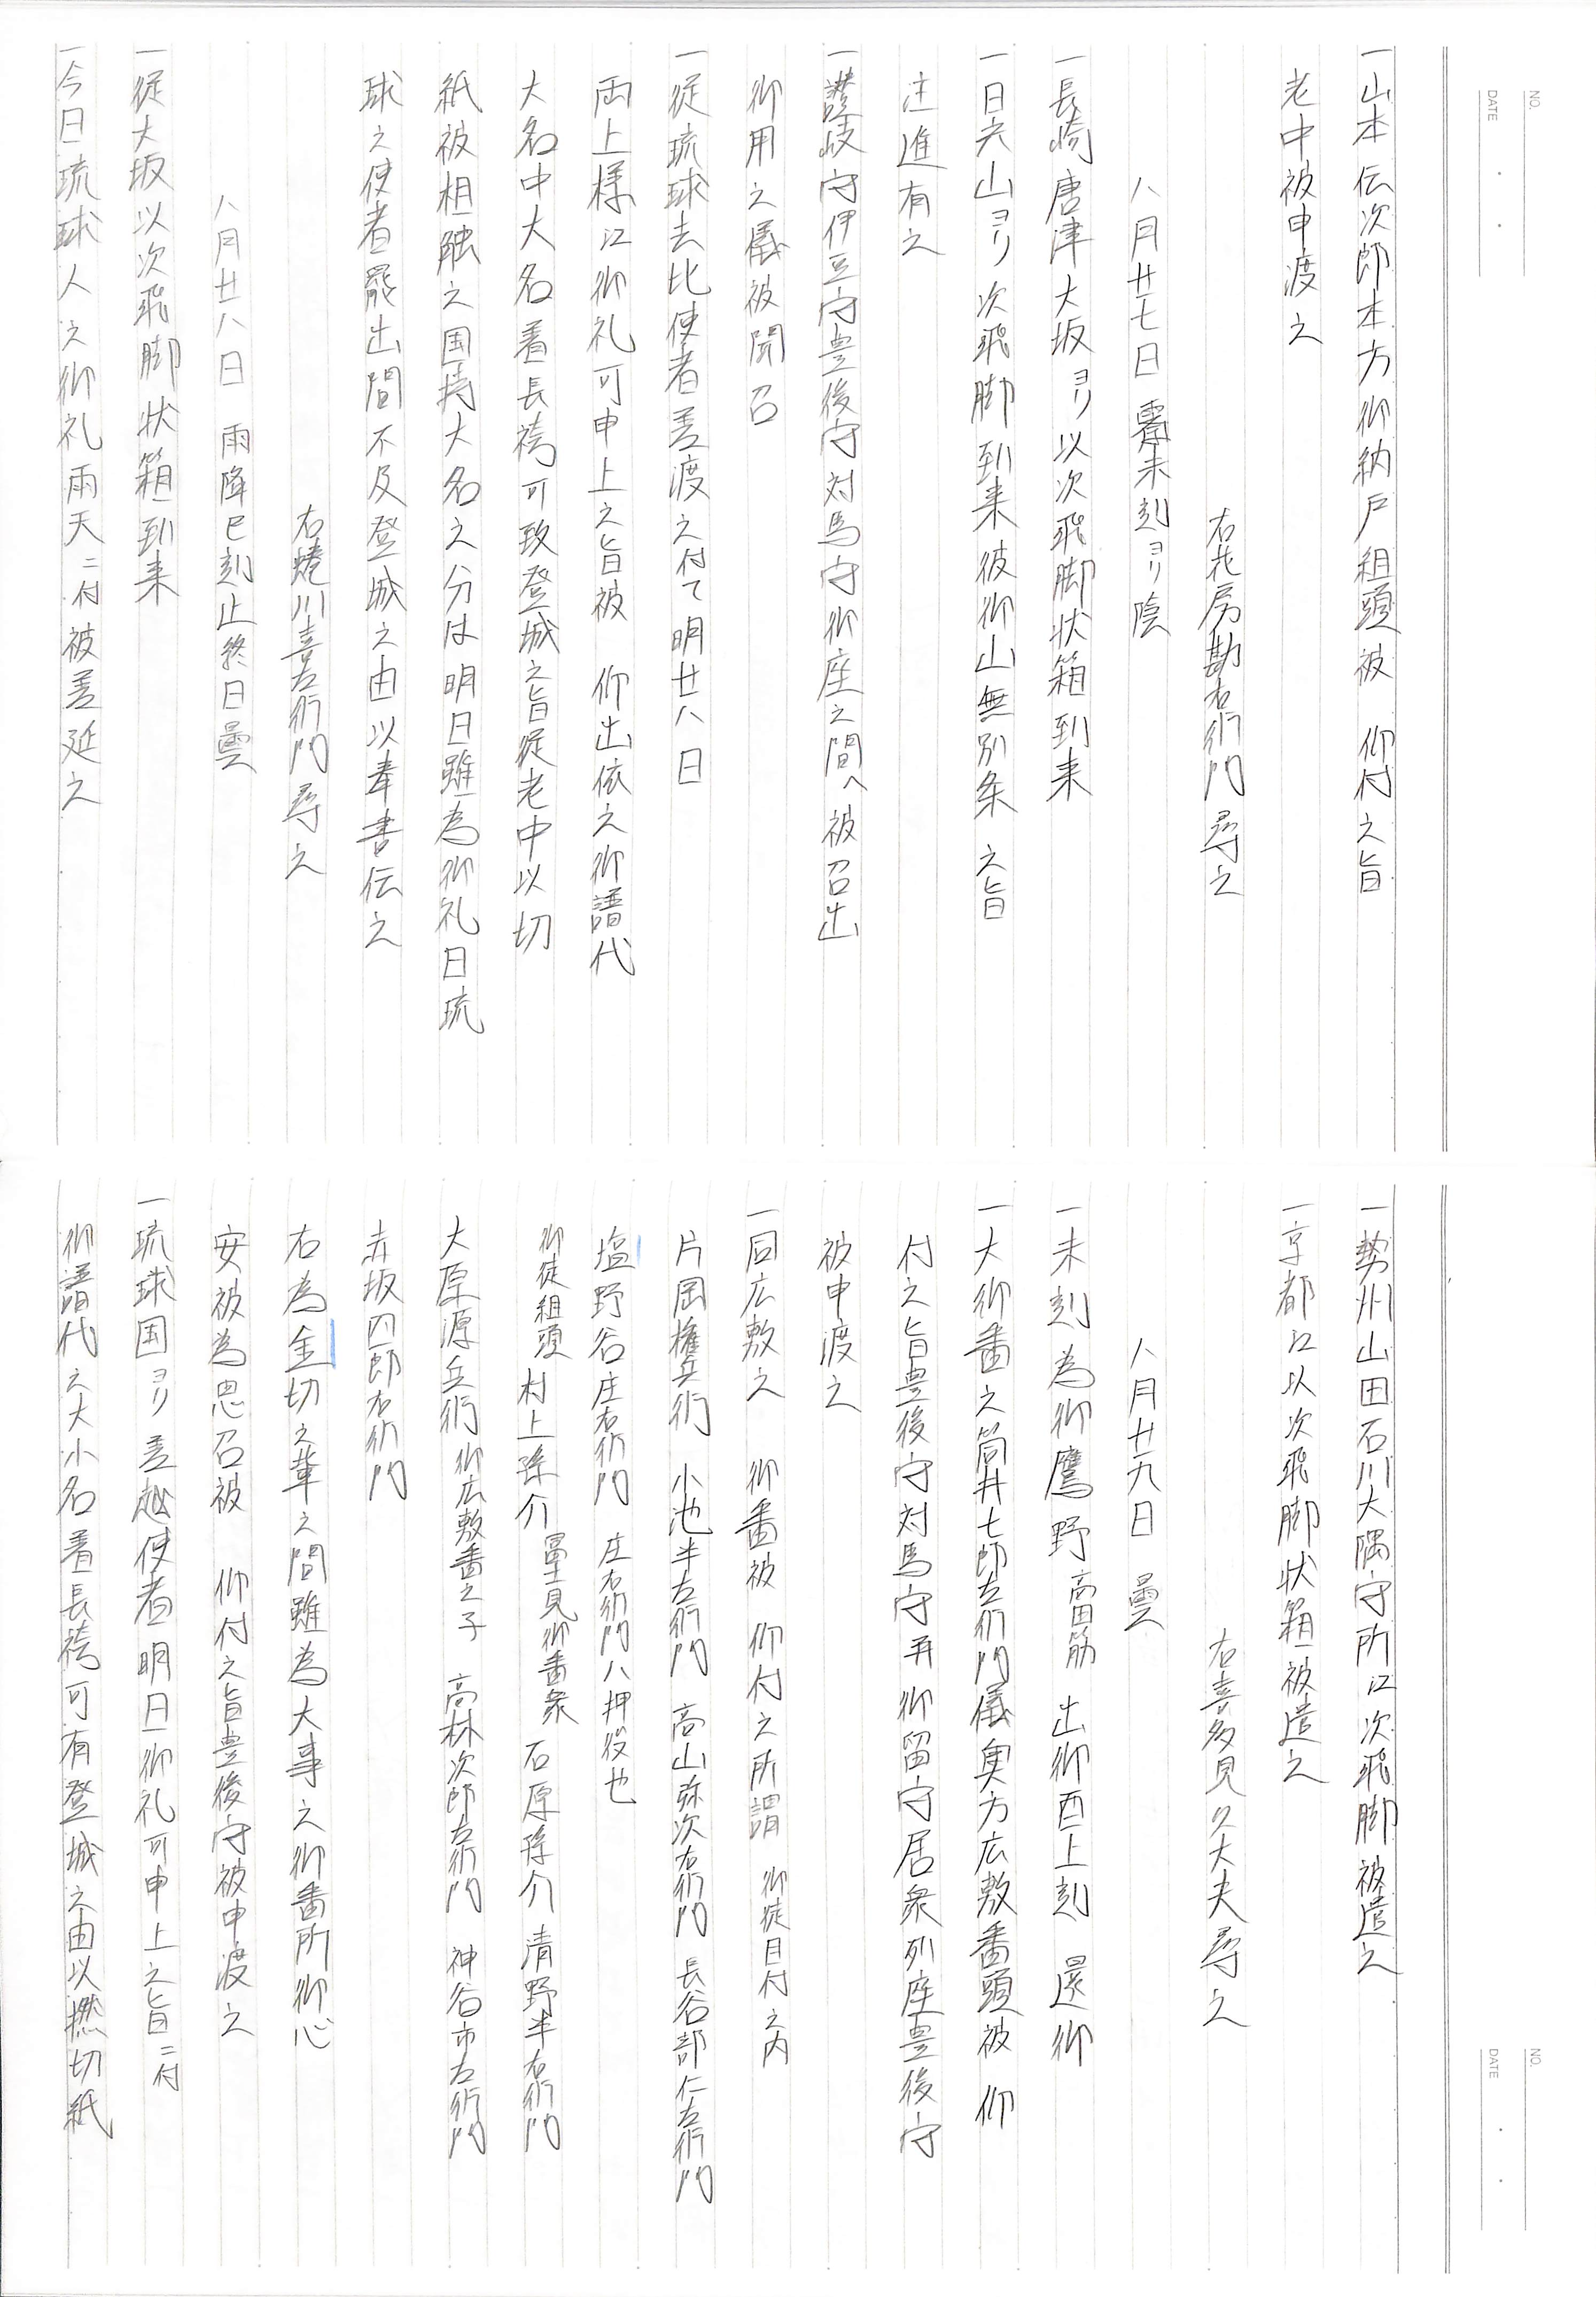 NO.
DATE
一山本伝次郎本方御納戸組頭被　仰付之旨
老中被申渡之
右花房勘右衛門尋之
八月廿七日　霽未刻ヨリ陰
一長崎唐津大坂ヨリ以次飛脚状箱到来
一日光山ヨリ次飛脚到来彼御山無別条之旨
注進有之
一讃岐守伊豆守豊後守対馬守御座之間へ被召出
御用之儀被聞召
一従琉球去比使者差渡之付て明廿八日
両上様江御礼可申上之旨被　仰出依之御譜代
大名中大名着長袴可致登城之旨従老中以切
紙被相触之国持大名之分は明日雖為御礼日琉
球之使者罷出間不及登城之由以奉書伝之
右蜷川喜左衛門尋之
八月廿八日　雨降巳刻止終日曇
一従大坂以次飛脚状箱到来
一今日琉球人之御礼雨天ニ付被差延之
NO.
DATE
一勢州山田石川大隅守所江次飛脚被遣之
一京都江以次飛脚状箱被遣之
右喜多見久大夫尋之
八月廿九日　曇
一未刻為御鷹野高田筋出御酉上刻還御
一大御番之筒井七郎左衛門儀奥方広敷番頭被　仰
付之旨豊後守対馬守并御留守居衆列座豊後守
被申渡之
一同広敷之　御番被　仰付之所謂　御徒目付之内
片岡権兵衛　小池半左衛門　高山弥次右衛門　長谷部仁左衛門
塩野谷庄右衛門　庄右衛門ハ押役也
御徒組頭　村上孫介　冨士見御番衆　石原孫介　清野半右衛門
大原源兵衛　御広敷番之子　高林次郎左衛門　神谷市左衛門
赤坂四郎右衛門
右為金切之輩之間雖為大事之御番所御心
安被為思召被　仰付之旨豊後守被申渡之
一琉球国ヨリ差越使者明日御礼可申上之旨ニ付
御譜代之大小名着長袴可有登城之由以撚切紙